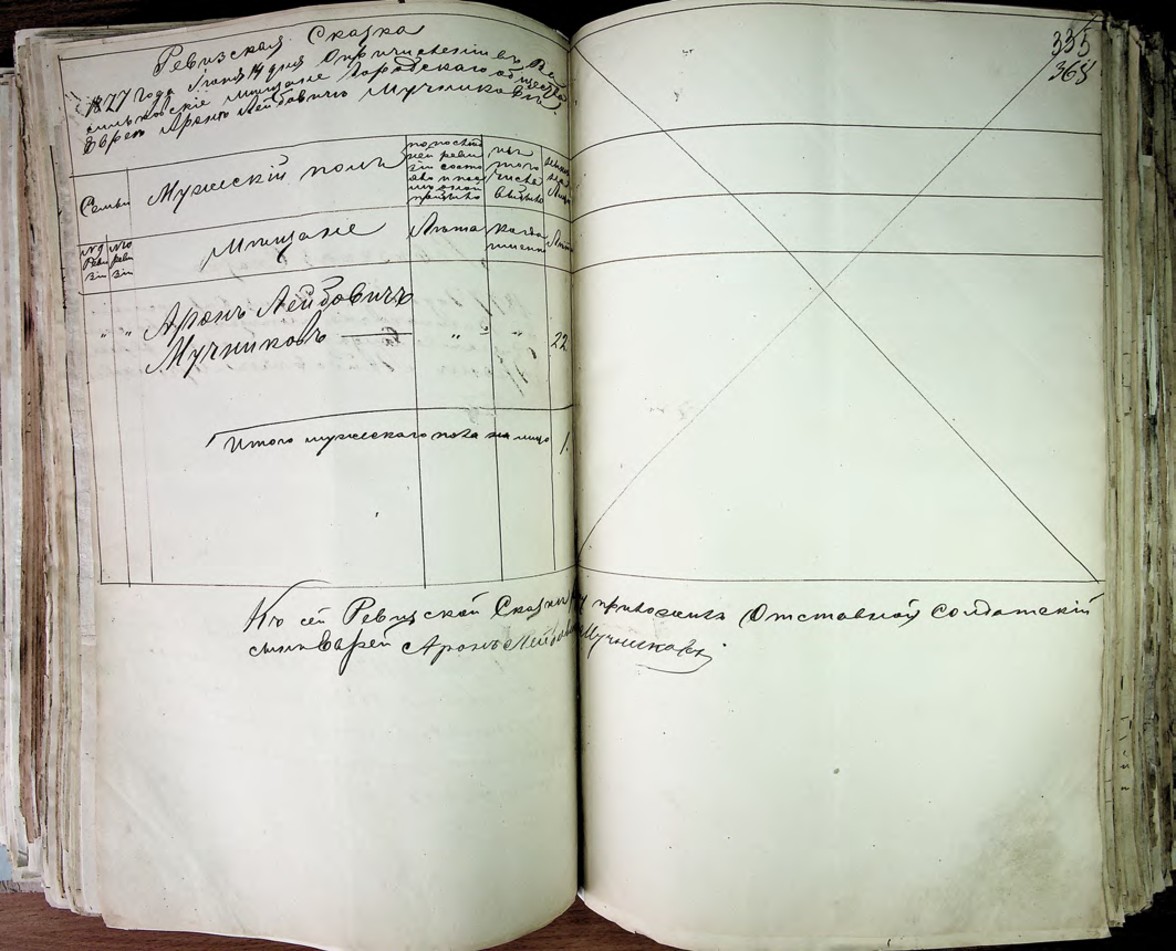 335
368
Ревизская Сказка
1827 года Iюня 14 дня О причисленiи въ Ва
сильковскiе мѣщане Городскаго общества
Еврея Аронъ Лейбовичъ Мучниковъ.
Семьи
Мужескiй полъ
по послѣд
ней реви
зiи состо
яло и пос
лѣ оной
прибыло
изъ
того
числа
выбыло
Лицо
№ Реви зiи
№ реви зiи
Мѣщане
Лѣта
когда
именно
Лѣта
" " Аронъ Лейбовичъ
Мучниковъ — " " 22
Итого мужескаго пола на лицо 1.
Къ сей Ревизской Сказки приложилъ Отставной Солдатскiй
сынъ Еврей Аронъ Лейбовичъ Мучниковъ